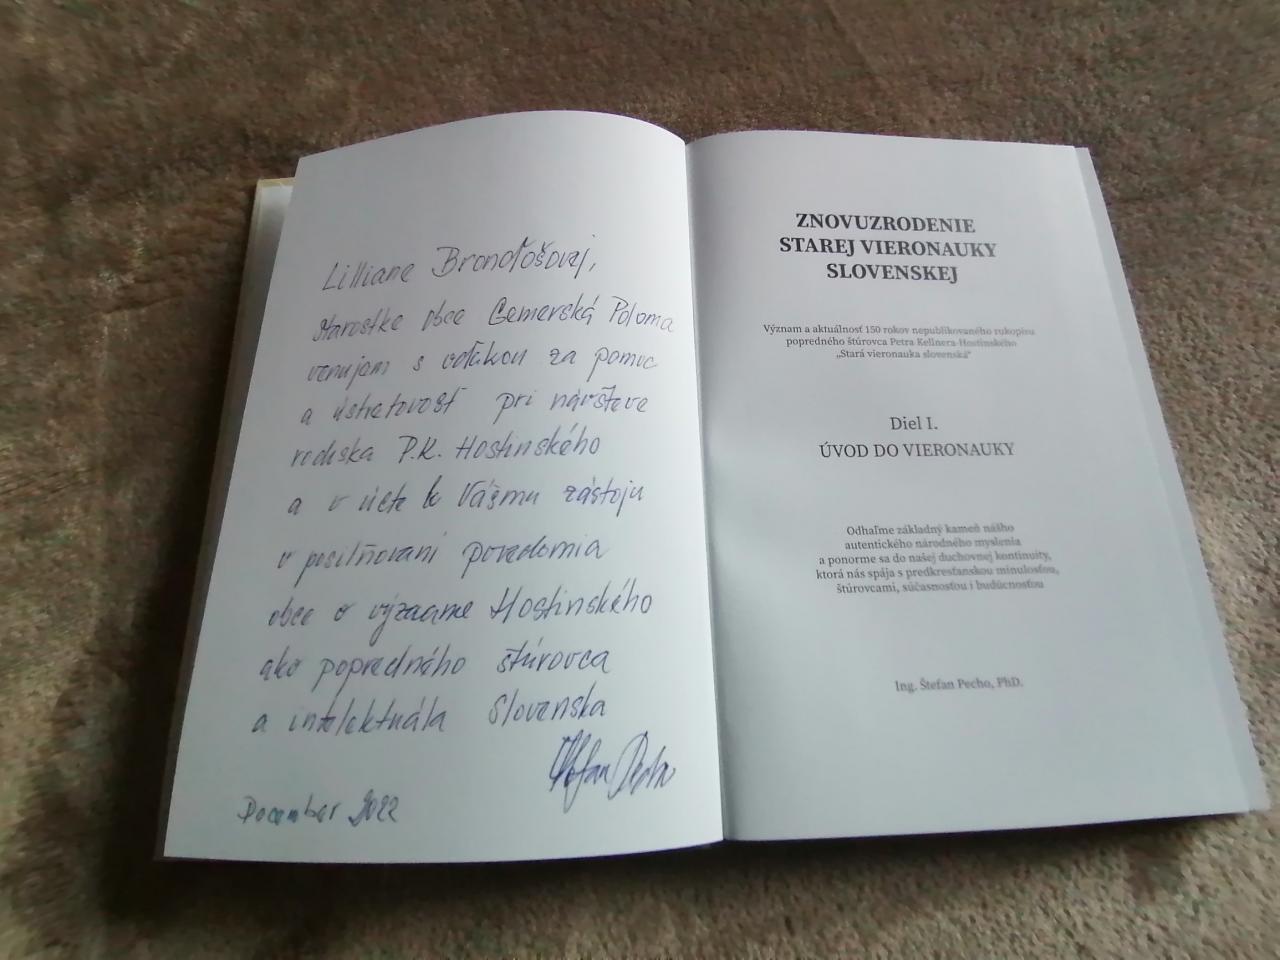 Lilliane Brondošovej,
starostke obce Gemerská Poloma
venujem s vďakou za pomoc
a ústretovosť pri návšteve
rodiska P.K. Hostinského
a v úcte k Vášmu zástoju
v posilňovaní povedomia
obce o význame Hostinského
ako popredného štúrovca
a intelektuála Slovenska
Štefan Pecho
December 2022
ZNOVUZRODENIE
STAREJ VIERONAUKY
SLOVENSKEJ
Význam a aktuálnosť 150 rokov nepublikovaného rukopisu
popredného štúrovca Petra Kellnera-Hostinského
„Stará vieronauka slovenská“
Diel I.
ÚVOD DO VIERONAUKY
Odhaľme základný kameň nášho
autentického národného myslenia
a ponorme sa do našej duchovnej kontinuity,
ktorá nás spája s predkresťanskou minulosťou,
štúrovcami, súčasnosťou i budúcnosťou
Ing. Štefan Pecho, PhD.